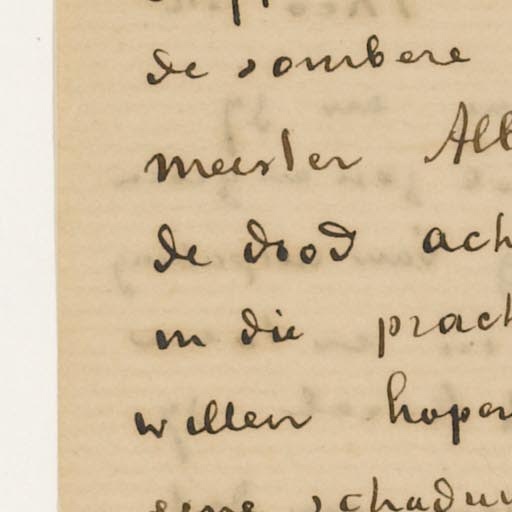 de sombere
meester Alb
de dood ach
in die prach
willen hopen
eene schaduw